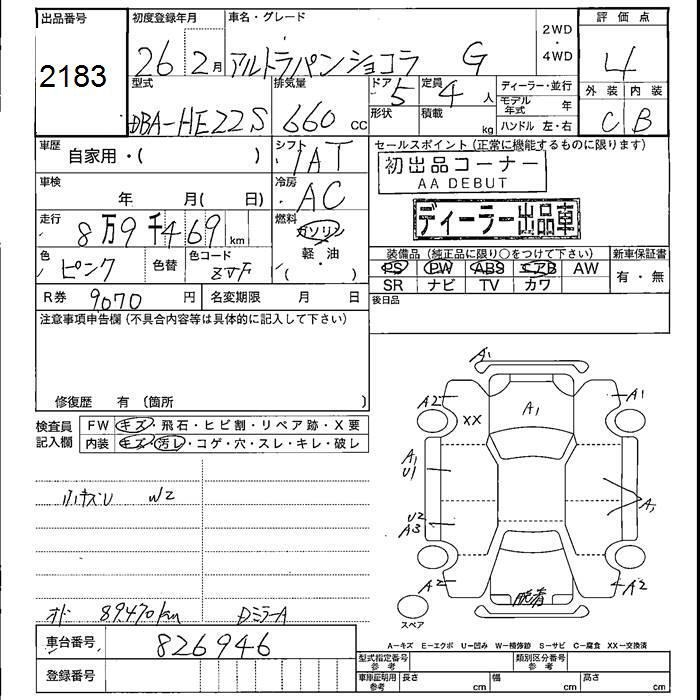 出品番号 初度登録年月 車名・グレード 2WD・4WD 評価点
2183 26年2月 アルトラパンショコラ G 4
型式 排気量 ドア 定員 ディーラー・並行 外装 内装
DBA-HE22S 660cc 5 4人 モデル年式 年 C B
形状 積載 kg ハンドル 左・右
車歴 自家用・( ) シフト IAT セールスポイント(正常に機能するものに限ります)
初出品コーナー
AA DEBUT
車検 年 月( 日) 冷房 AC
ディーラー出品車
走行 8万9千469km 燃料 ガソリン
軽・油
( )
装備品(純正品に限り○をつけて下さい) 新車保証書
色 ピンク 色替 色コード ZVF
PS PW ABS エアB AW 有・無
SR ナビ TV カワ
R券 9070円 名変期限 月 日 後日品
注意事項申告欄(不具合内容等は具体的に記入して下さい)
修復歴 有(箇所 )
検査員記入欄 FW キズ・飛石・ヒビ割・リペア跡・X要
内装 キズ・汚レ・コゲ・穴・スレ・キレ・破レ
W2
A1
A2 A1
XX A1
A1
U1
U2
A3
A2 A2
脱着
スペア
オド 89470km DミラーA
A−キズ E−エクボ U−凹み W−補修跡 S−サビ C−腐食 XX−交換済
車台番号 826946
型式指定番号参考 類別区分番号参考
登録番号 車庫証明用参考 長さ cm 幅 cm 高さ cm